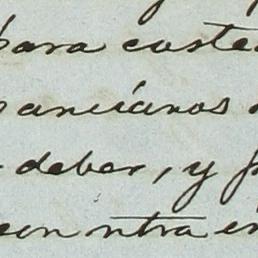 para coste
ancianos
deber, y
ntra en